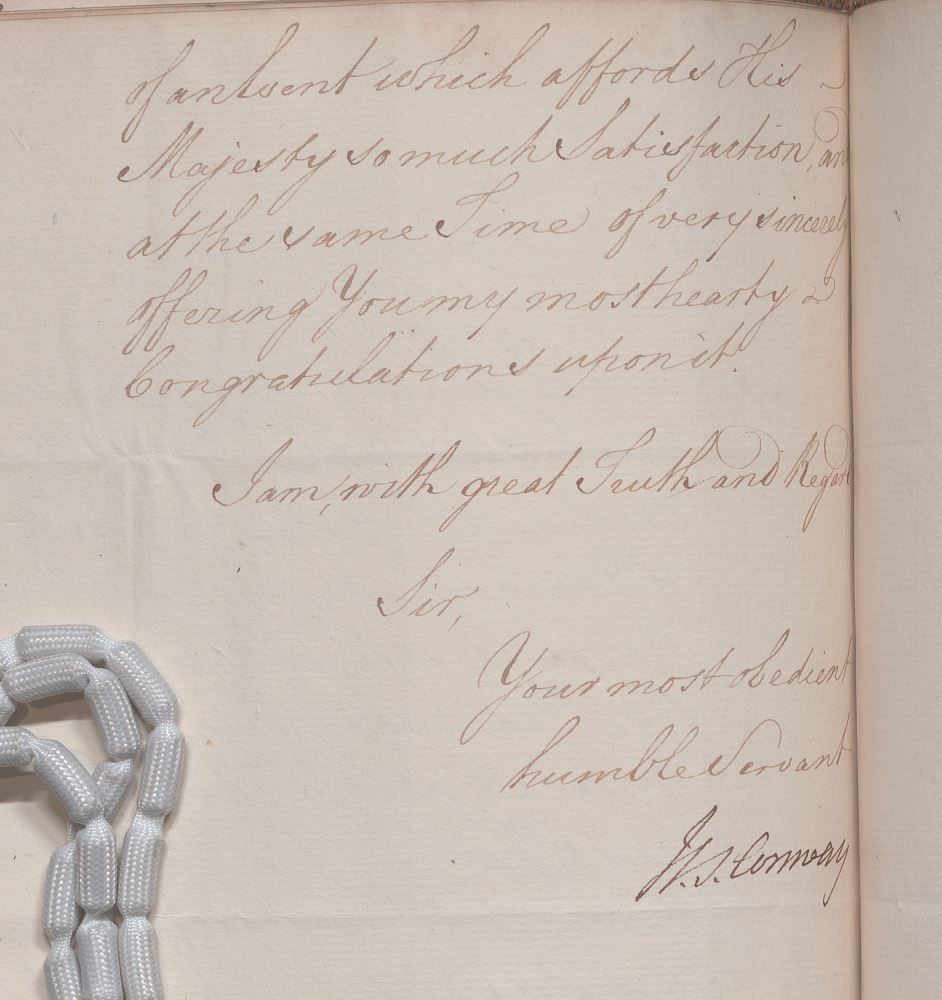 of an Event which affords His
Majesty so much Satisfaction, an
at the same Time of very sincerely
offering You my most hearty
Congratulations upon it.
I am, with great Truth and Regar
Sir,
Your most obedient
humble Servant
H. S. Conway